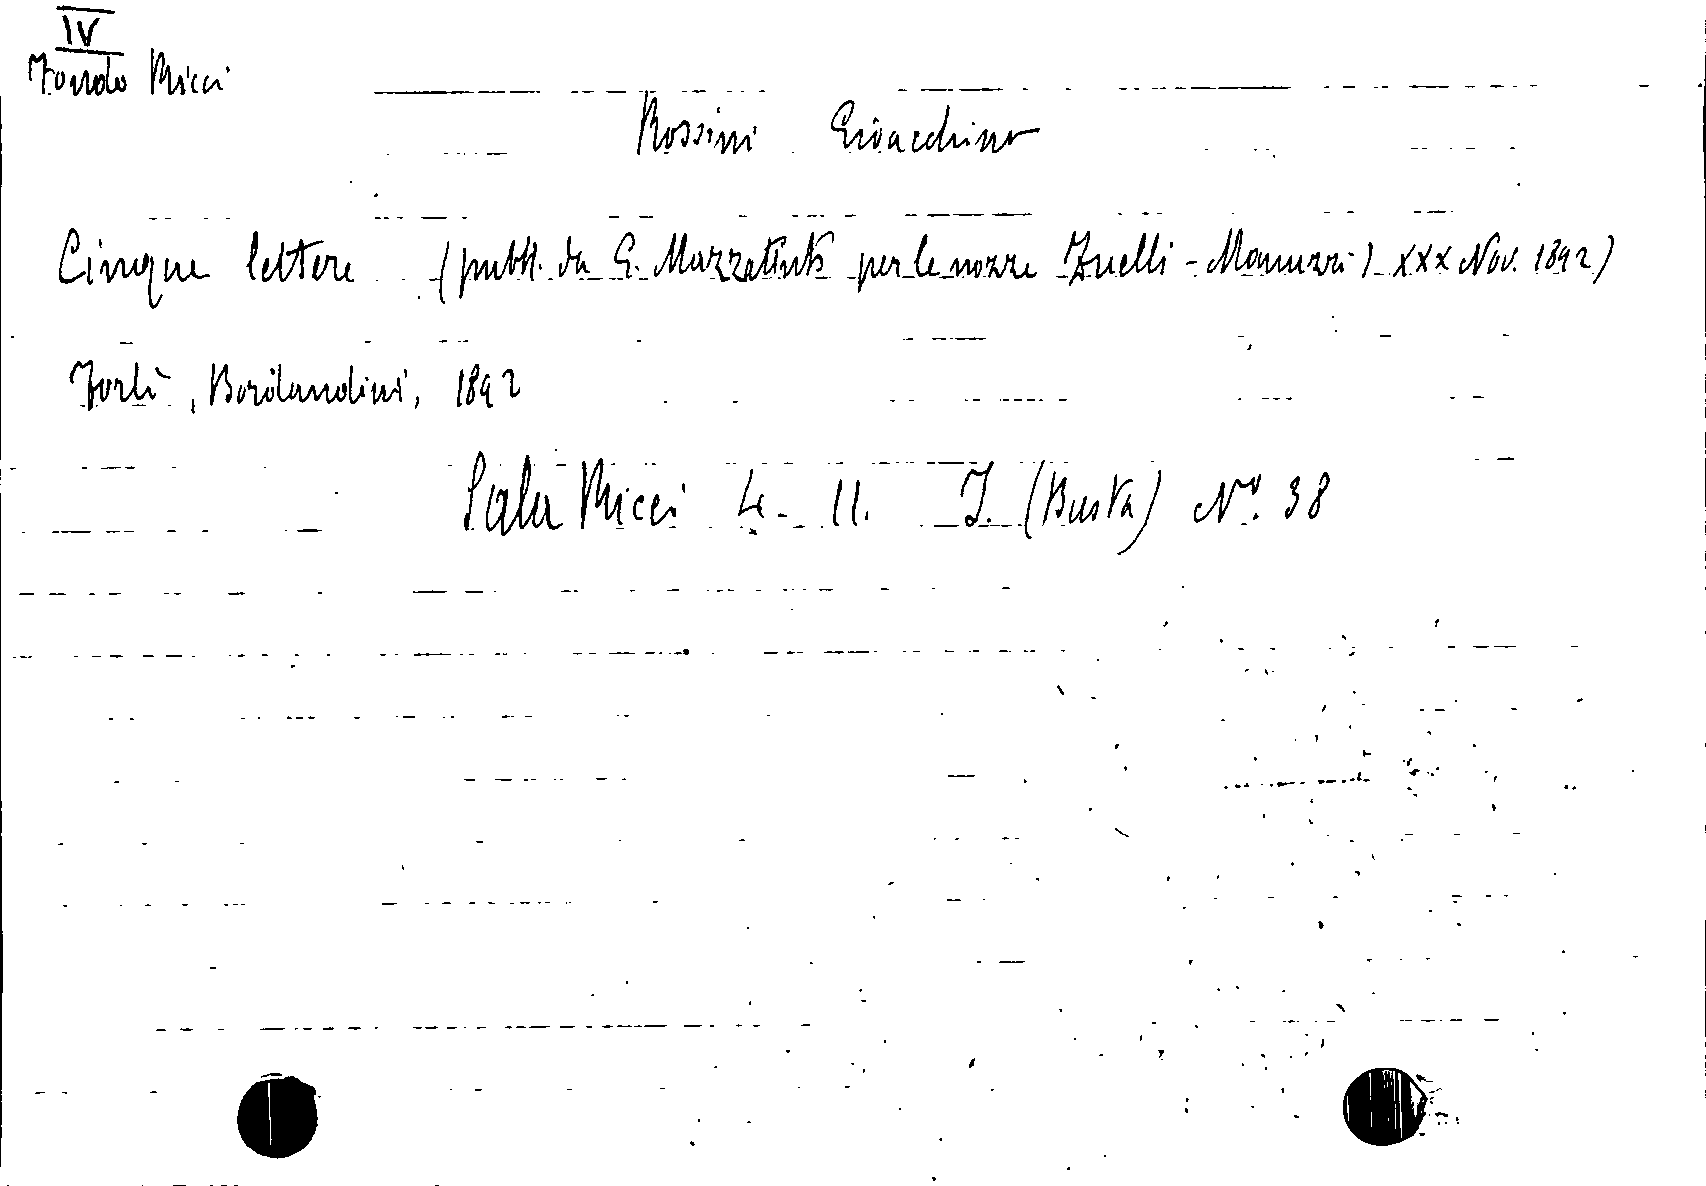 IV
Fondo Ricci
Rossini Gioacchino
Cinque lettere (pubbl. da G. Mazzatinti per le nozze Zuelli - Manuzzi) XXX Nov. 1892)
Forlì, Bordandini, 1892
Sala Ricci 4 - 11. I. (Busta) Nº. 38